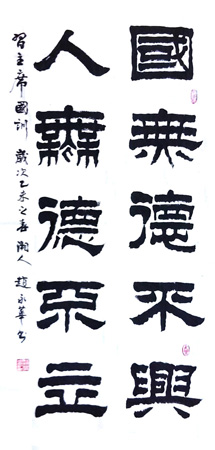 國無德不興
人無德不立
習主席國訓 歲次乙未之春 湘人 趙永華书